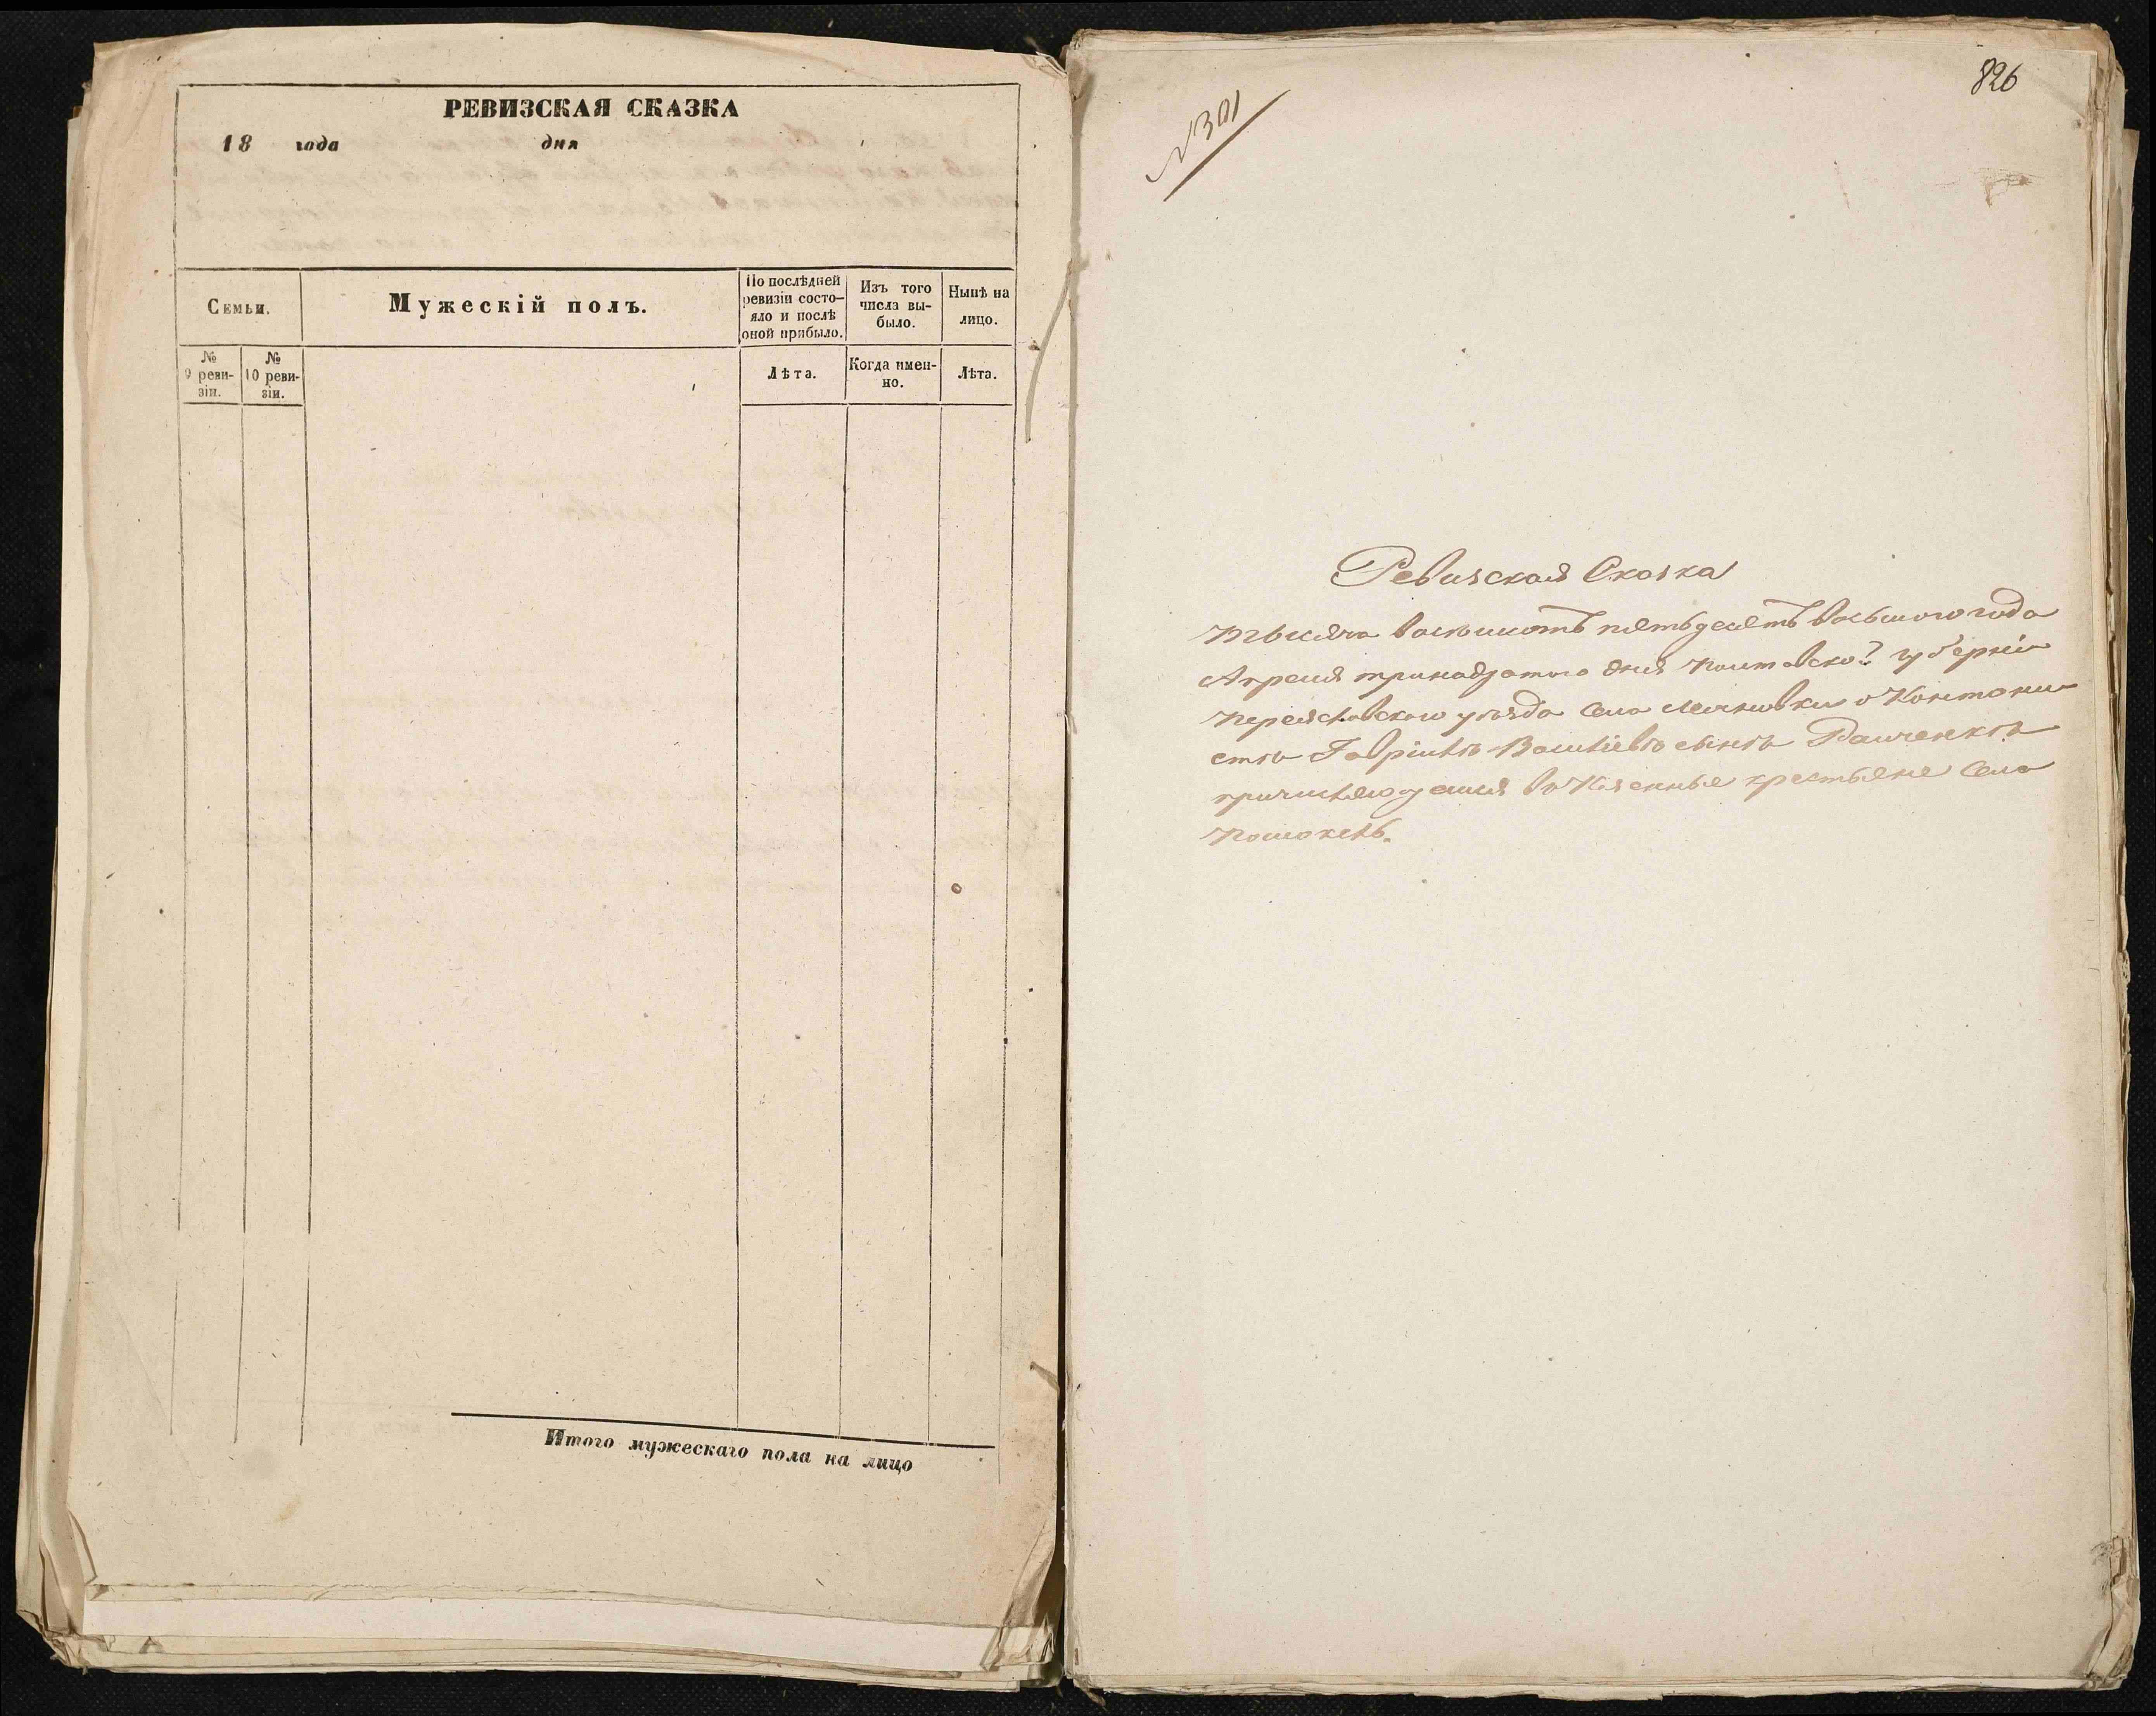 РЕВИЗСКАЯ СКАЗКА
18 года дня
Семьи.
Мужескій полъ.
По послѣдней ревизіи состо-
яло и послѣ оной прибыло.
Изъ того числа вы-
было.
Нынѣ на лицо.
№ 9 реви-
зіи.
№ 10 реви-
зіи.
Лѣта.
Когда имен-
но.
Лѣта.
Итого мужескаго пола на лицо
826
№301
Ревизская Сказка
Тысяча восемьсотъ пятьдесятъ восьмого года
Апреля тринадцатого дня Полтавской губерніи
Переяславского уезда Села о Кантони
стѣ Гавріилѣ Василіевѣ сынѣ
причисляющемся въ Казенные крестьяне Села